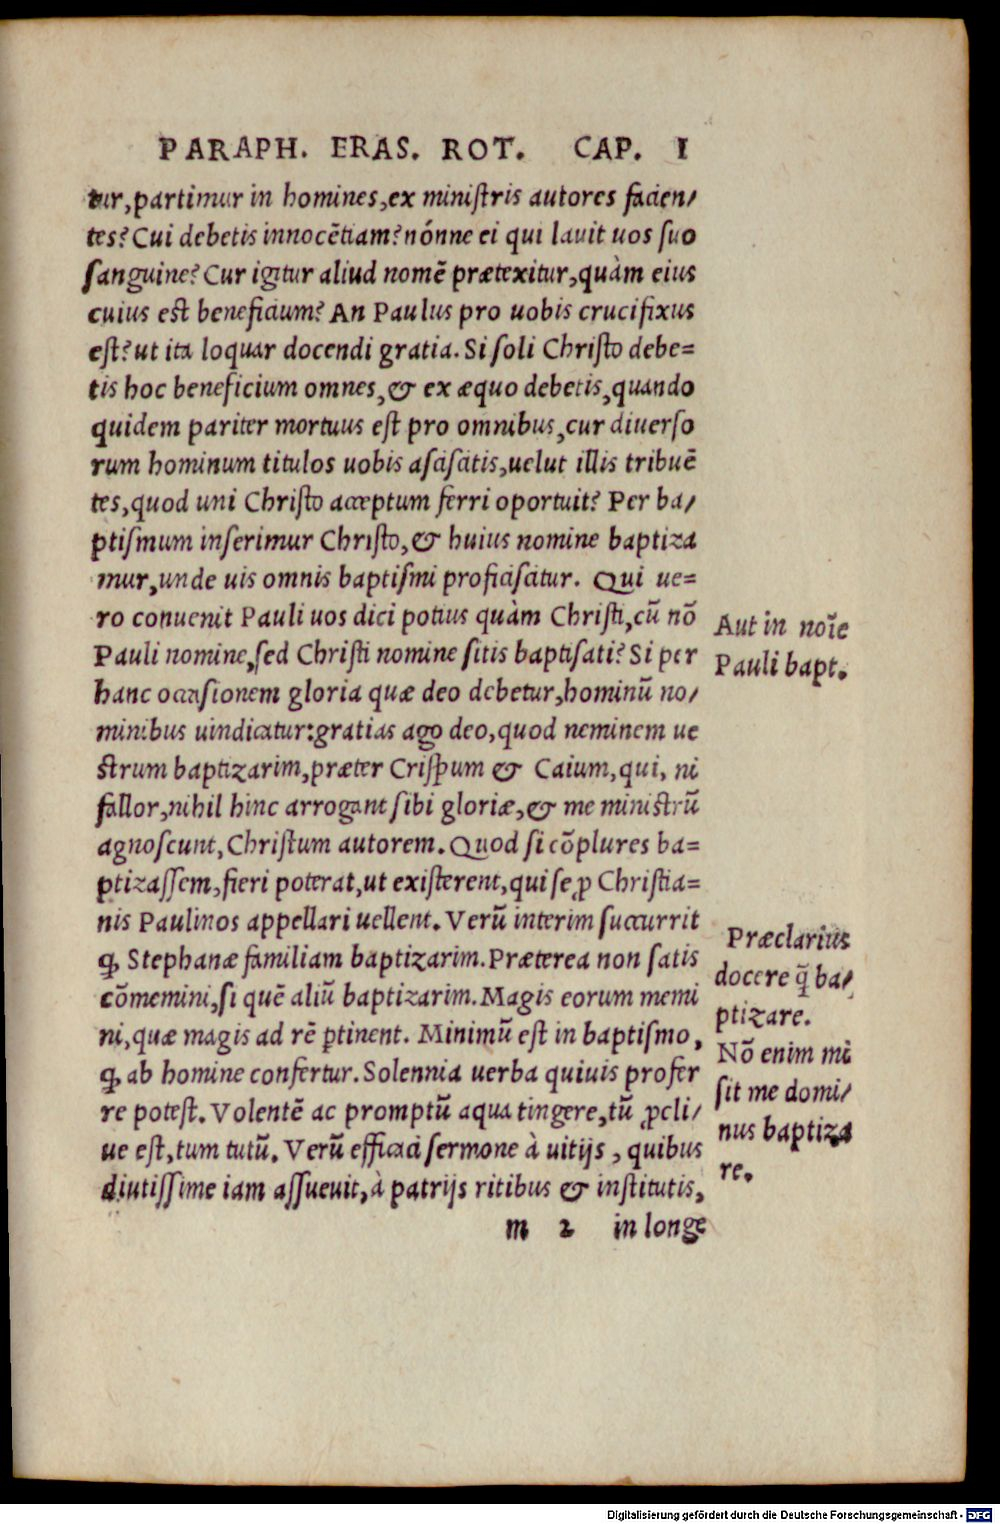 PARAPH. ERAS. ROT. CAP. I
tur,partimur in homines,ex ministris autores facien/
tes? Cui debetis innocẽtiam? nónne ei qui lauit uos suo
sanguine? Cur igitur aliud nomẽ prætexitur,quàm eius
cuius est beneficium? An Paulus pro uobis crucifixus
est? ut ita loquar docendi gratia. Si soli Christo debe=
tis hoc beneficium omnes,& ex æquo debetis,quando
quidem pariter mortuus est pro omnibus,cur diuerso
rum hominum titulos uobis asciscitis,uelut illis tribuẽ
tes,quod uni Christo acceptum ferri oportuit? Per ba/
ptismum inserimur Christo,& huius nomine baptiza
mur,unde uis omnis baptismi proficiscitur. Qui ue=
ro conuenit Pauli uos dici potius quàm Christi,cũ nõ
Pauli nomine,sed Christi nomine sitis baptisati? Si per
hanc occasionem gloria quæ deo debetur,hominũ no/
minibus uindicatur:gratias ago deo,quod neminem ue
strum baptizarim,præter Crispum & Caium,qui, ni
fallor,nihil hinc arrogant sibi gloriæ,& me ministrũ
agnoscunt,Christum autorem. Quod si cõplures ba=
ptizassem,fieri poterat,ut existerent,qui se ꝓ Christia=
nis Paulinos appellari uellent. Verũ interim succurrit
ꝙ Stephanæ familiam baptizarim. Præterea non satis
cõmemini,si quẽ aliũ baptizarim. Magis eorum memi
ni,quæ magis ad rẽ ꝑtinent. Minimũ est in baptismo,
ꝙ ab homine confertur. Solennia uerba quiuis profer
re potest. Volentẽ ac promptũ aqua tingere,tũ ꝓcli/
ue est,tum tutũ. Verũ efficaci sermone à uitijs, quibus
diutissime iam assueuit,à patrijs ritibus & institutis,
m 2 in longe
Aut in noĩe
Pauli bapt.
Præclarius
docere q̃ ba/
ptizare.
Nõ enim mi
sit me domi/
nus baptiza
re.
Digitalisierung gefördert durch die Deutsche Forschungsgemeinschaft - DFG